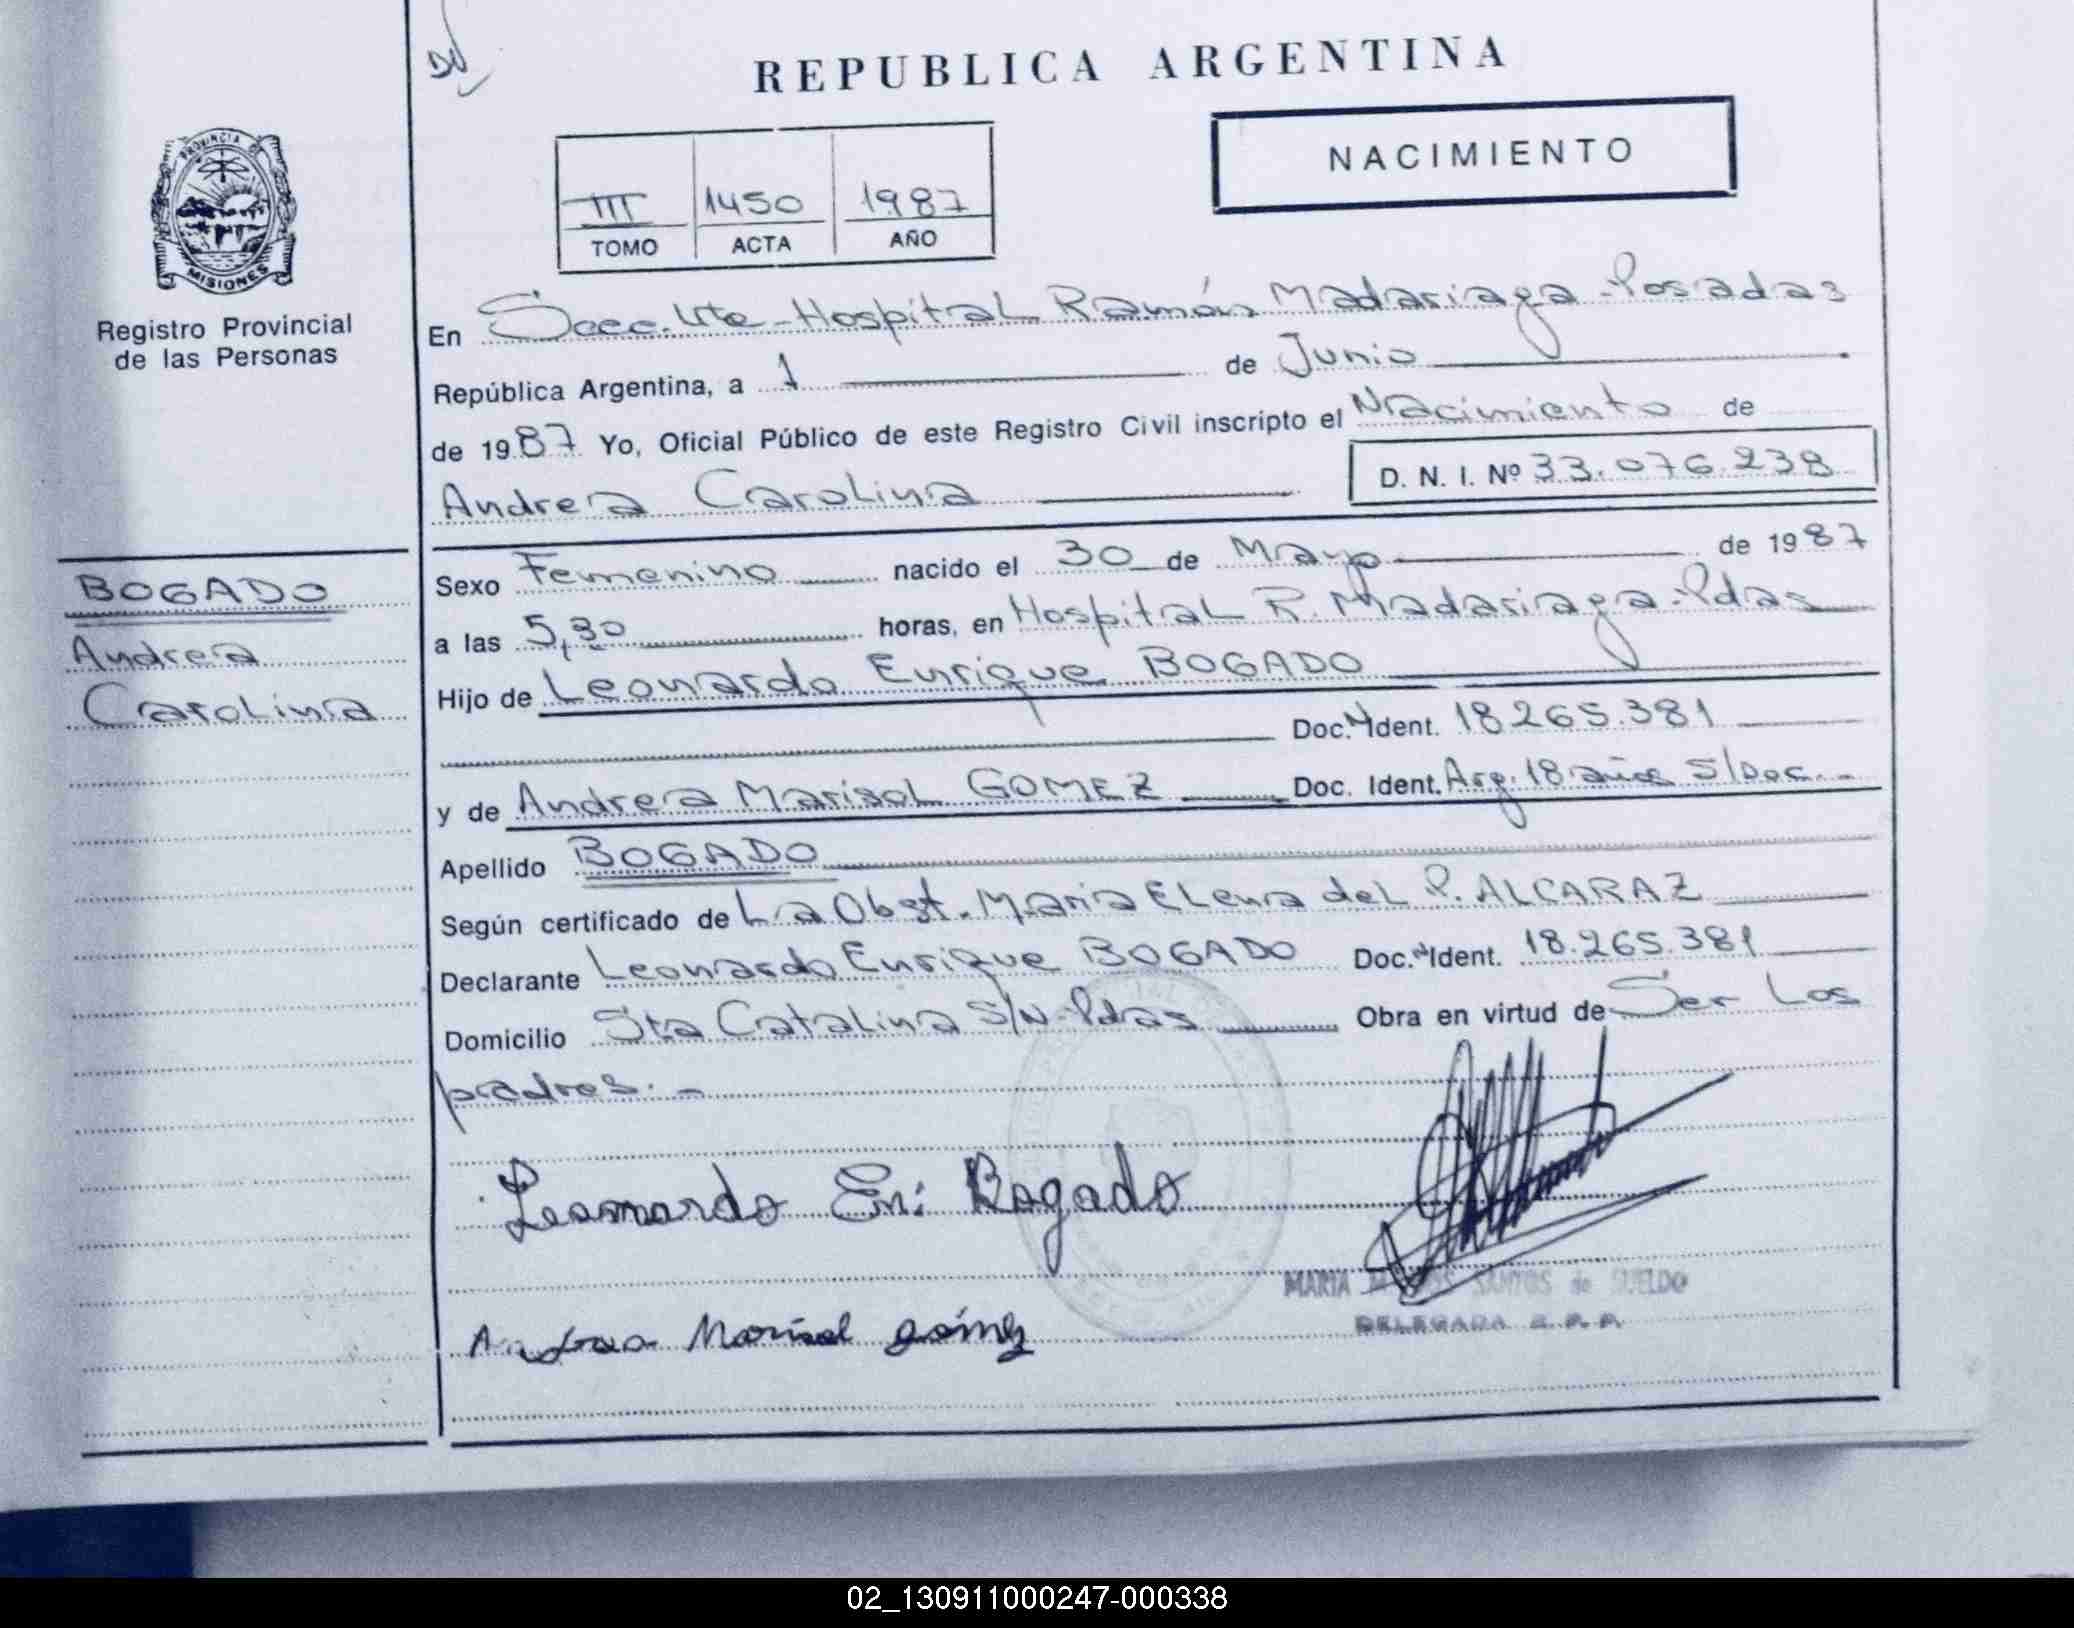 REPUBLICA ARGENTINA
NACIMIENTO
III 1450 1987
TOMO ACTA AÑO
PROVINCIA DE
MISIONES
Registro Provincial
de las Personas
En Secc. Hospital Ramón Madariaga - Posadas
República Argentina, a 1 de Junio
de 1987 Yo, Oficial Público de este Registro Civil inscripto el Nacimiento de
Andrea Carolina D. N. I. Nº 33.076.238
BOGADO
Andrea
Carolina
Sexo Femenino nacido el 30 de Mayo de 1987
a las 5,30 horas, en Hospital R. Madariaga - Pdas
Hijo de Leonardo Enrique BOGADO
Doc. Ident. 18265.381
y de Andrea Marisol GOMEZ Doc. Ident. Arg. 18 años S/Doc.-
Apellido BOGADO
Según certificado de La Obst. Maria Elena del P. ALCARAZ
Declarante Leonardo Enrique BOGADO Doc. Ident. 18.265.381
Domicilio Sta Catalina S/N - Pdas Obra en virtud de Ser Los
padres.-
Leonardo En: Bogado
MARIA SANTOS de SUELDO
DELEGADA R. P. P.
Andrea Marisol gómez
02_130911000247-000338